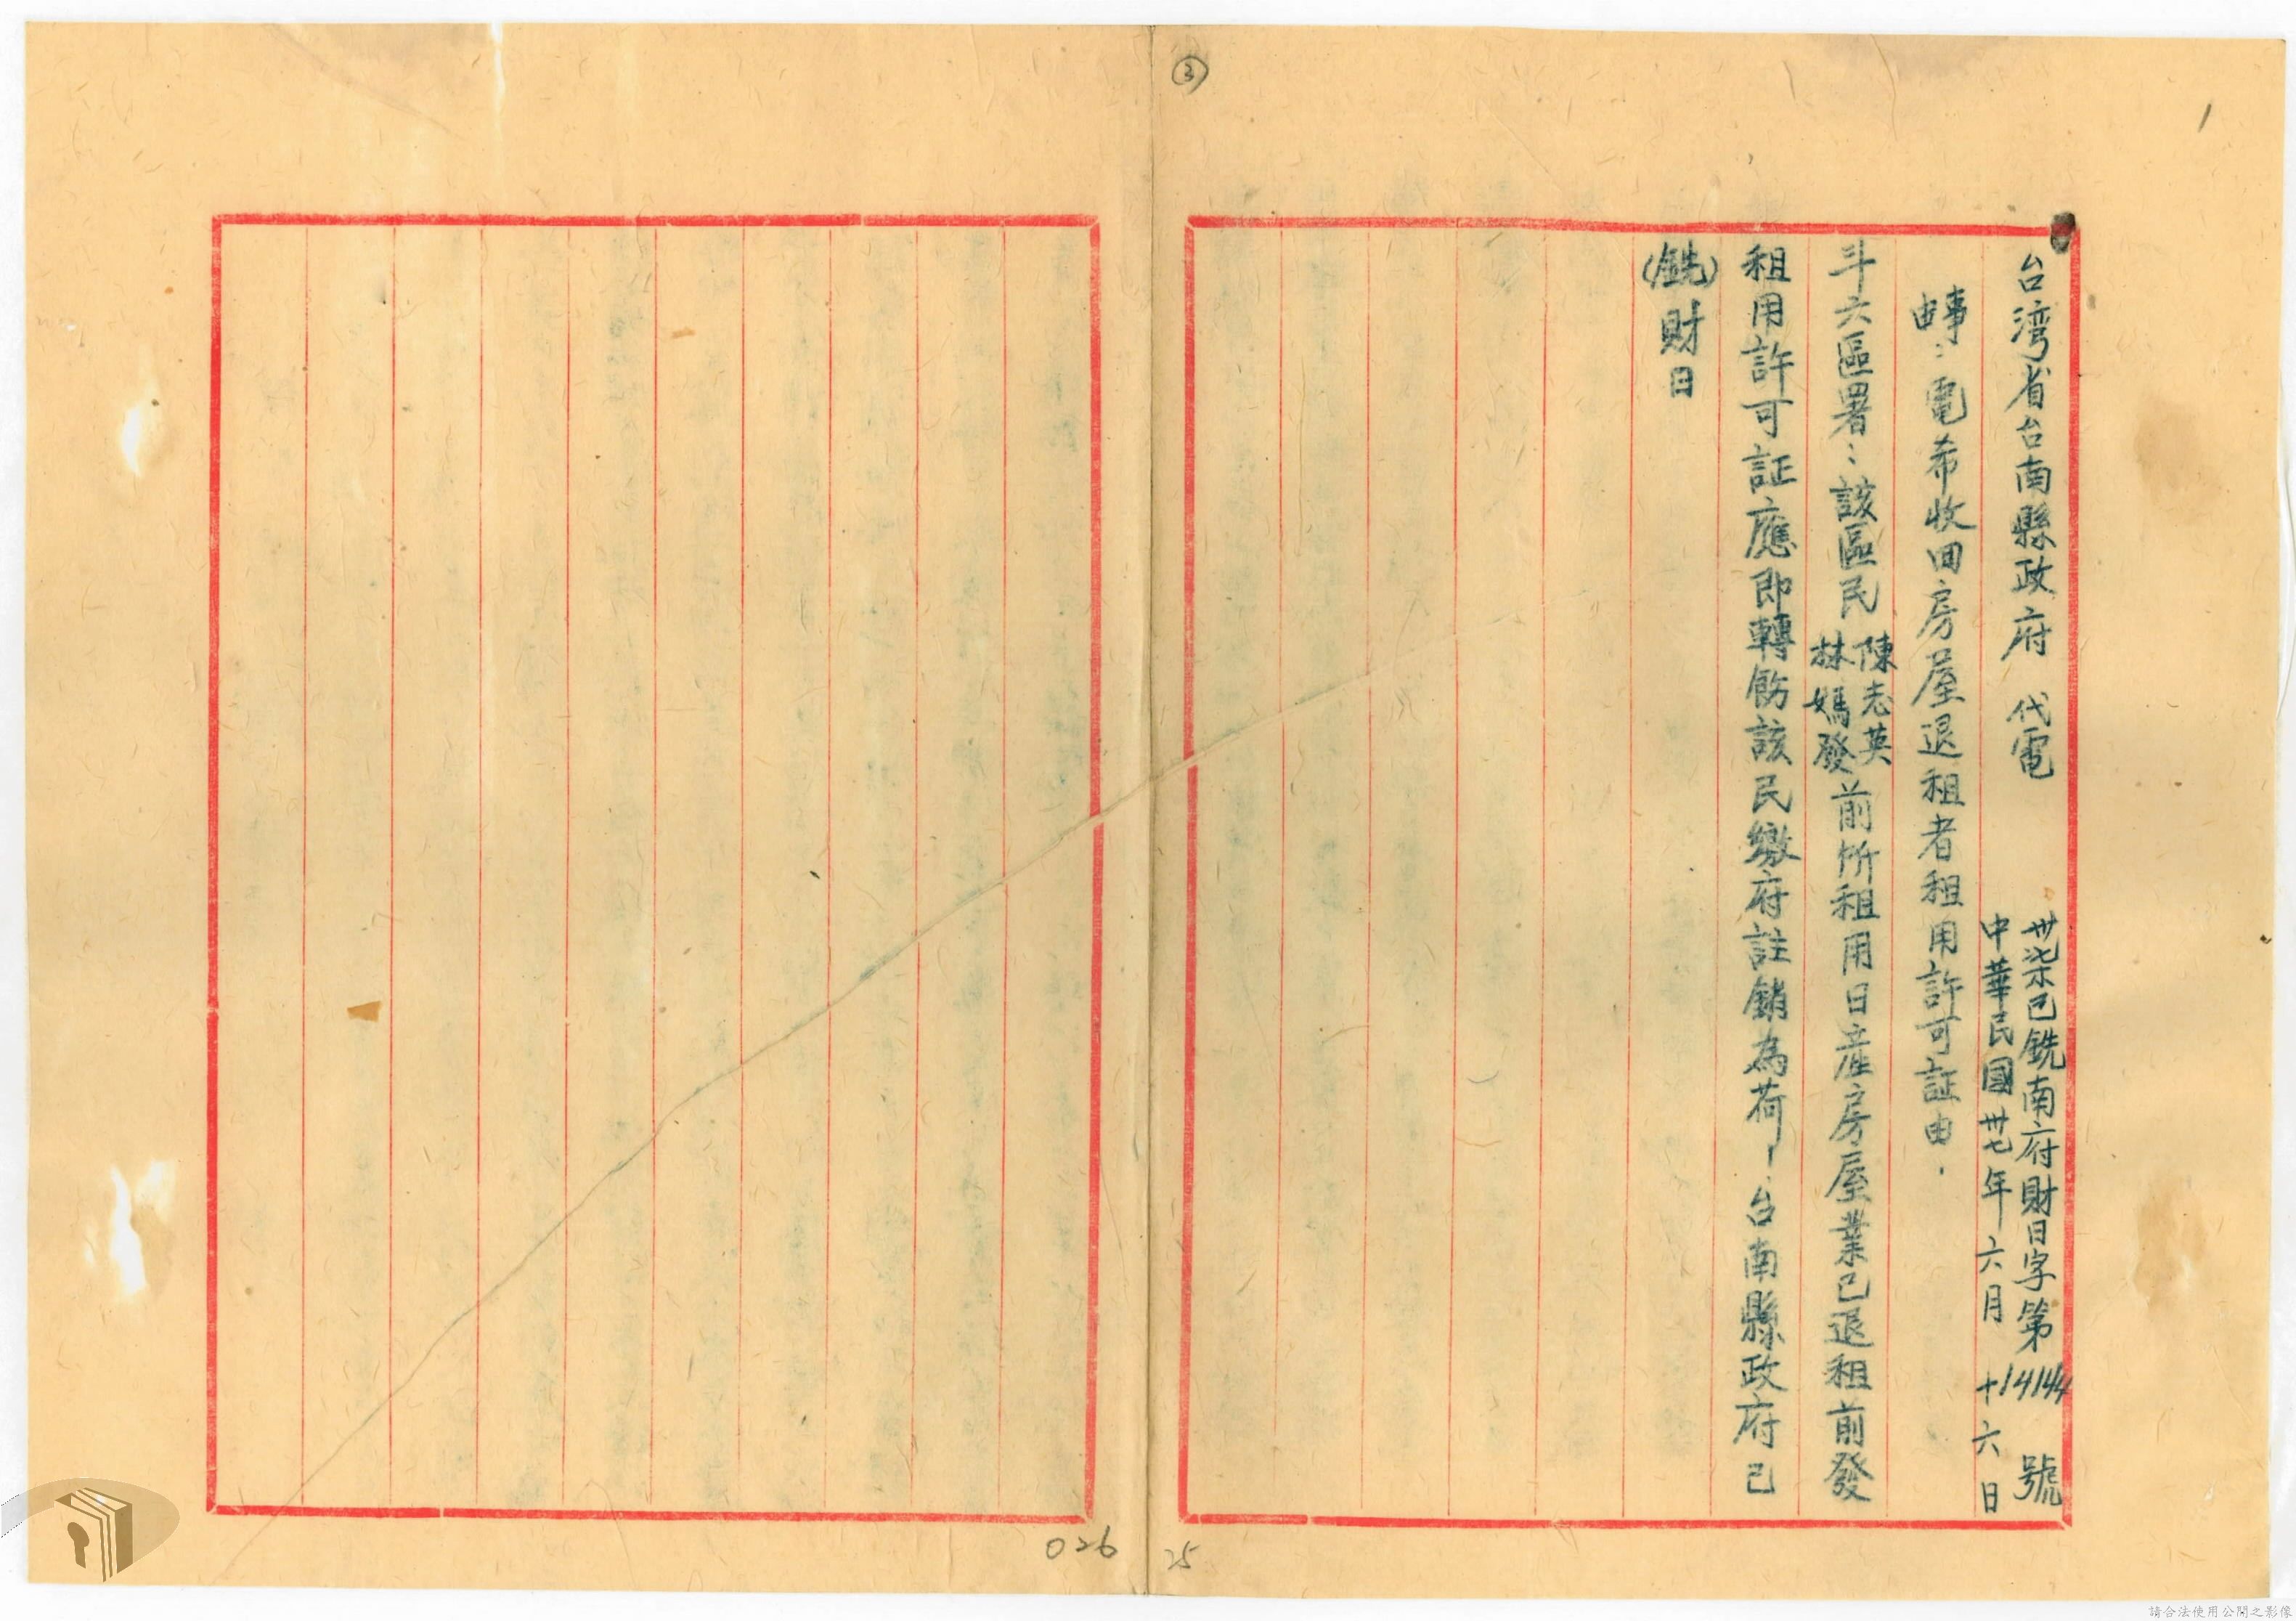 ③
台湾省台南縣政府　代電
卅柒巳銑南府財日字第14144號
中華民國卅七年六月十六日
事由：電希收回房屋退租者租用許可証由．
斗六區署：該區民陳志英林媽發前所租用日產房屋業已退租前發
租用許可証應即轉飭該民繳府註銷為荷！台南縣政府巳
（銑）財日
25
026
請合法使用公開之影像